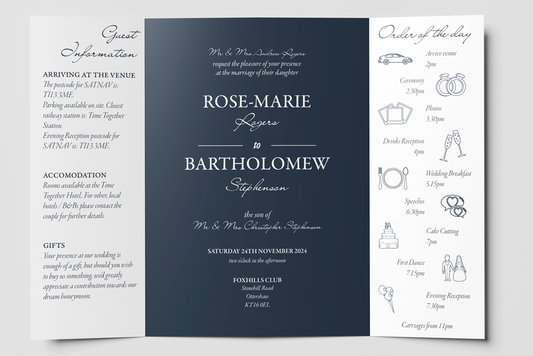 Guest
Information
ARRIVING AT THE VENUE
The postcode for SATNAV is:
TI13 3ME.
Parking available on site. Closest
railway station is: Time Together
Station.
Evening Reception postcode for
SATNAV is: TI13 3ME.
ACCOMODATION
Rooms available at the Time
Together Hotel. For other, local
hotels / B&Bs please contact the
couple for further details.
GIFTS
Your presence at our wedding is
enough of a gift, but should you wish
to buy us something, we'd greatly
appreciate a contribution towards our
dream honeymoon.
Mr & Mrs Andrew Rogers
request the pleasure of your presence
at the marriage of their daughter
ROSE-MARIE
Rogers
to
BARTHOLOMEW
Stephenson
the son of
Mr & Mrs Christopher Stephenson
SATURDAY 24TH NOVEMBER 2024
two o'clock in the afternoon
FOXHILLS CLUB
Stonehill Road
Ottershaw
KT16 0EL
Order of the day
Arrive venue
2pm
Ceremony
2.30pm
Photos
3.30pm
Drinks Reception
4pm
Wedding Breakfast
5.15pm
Speeches
6.30pm
Cake Cutting
7pm
First Dance
7.15pm
Evening Reception
7.30pm
Carriages from 11pm